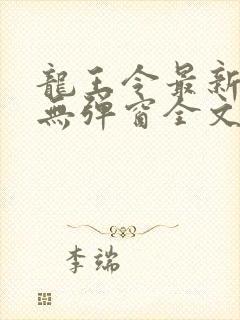 龍王令最新
無彈窗全文
李端